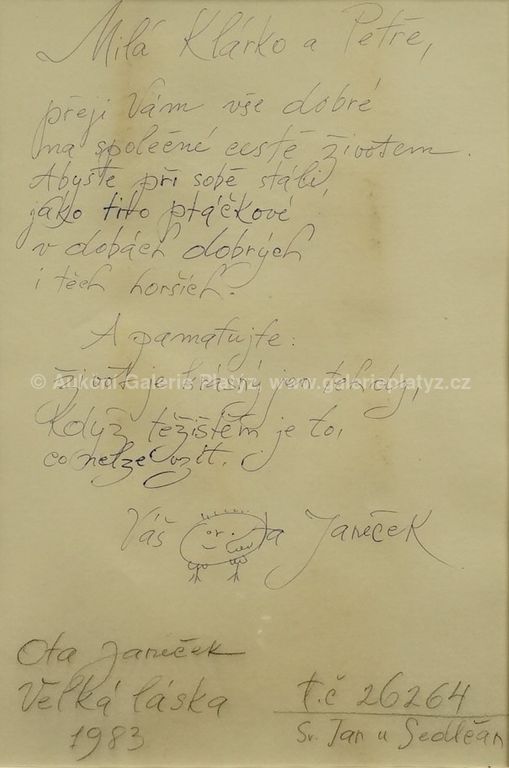 Milá Klárko a Petře,
přeji Vám vše dobré
na společné cestě životem.
Abyste při sobě stáli,
jako tito ptáčkové
v dobách dobrých
i těch horších.
A pamatujte:
život je krásný jen tehdy,
když těžištěm je to,
co nelze vzít.
© Aukční Galerie Platýz www.galerieplatyz.cz
Váš Ota Janeček
Ota Janeček
Velká láska
1983
t.č 26264
Sv. Jan u Sedlčan